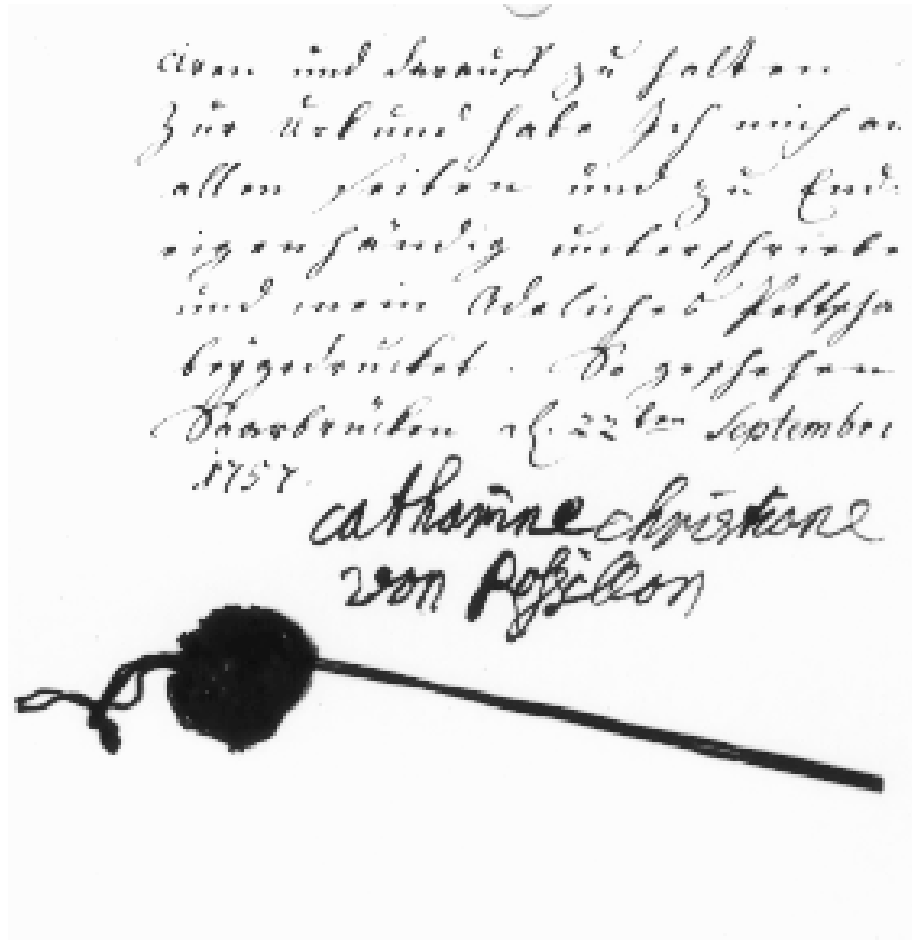 ciren und darauff zu halten
Zur Urkund habe Ich mich an
allen seiten und zu End
eigenhändig unterschriebe
und mein Adeliches Pettscha
beygedrucket. So geschehen
Saarbrücken d. 22ten September
1757.
catharine christiane
von Roßillon